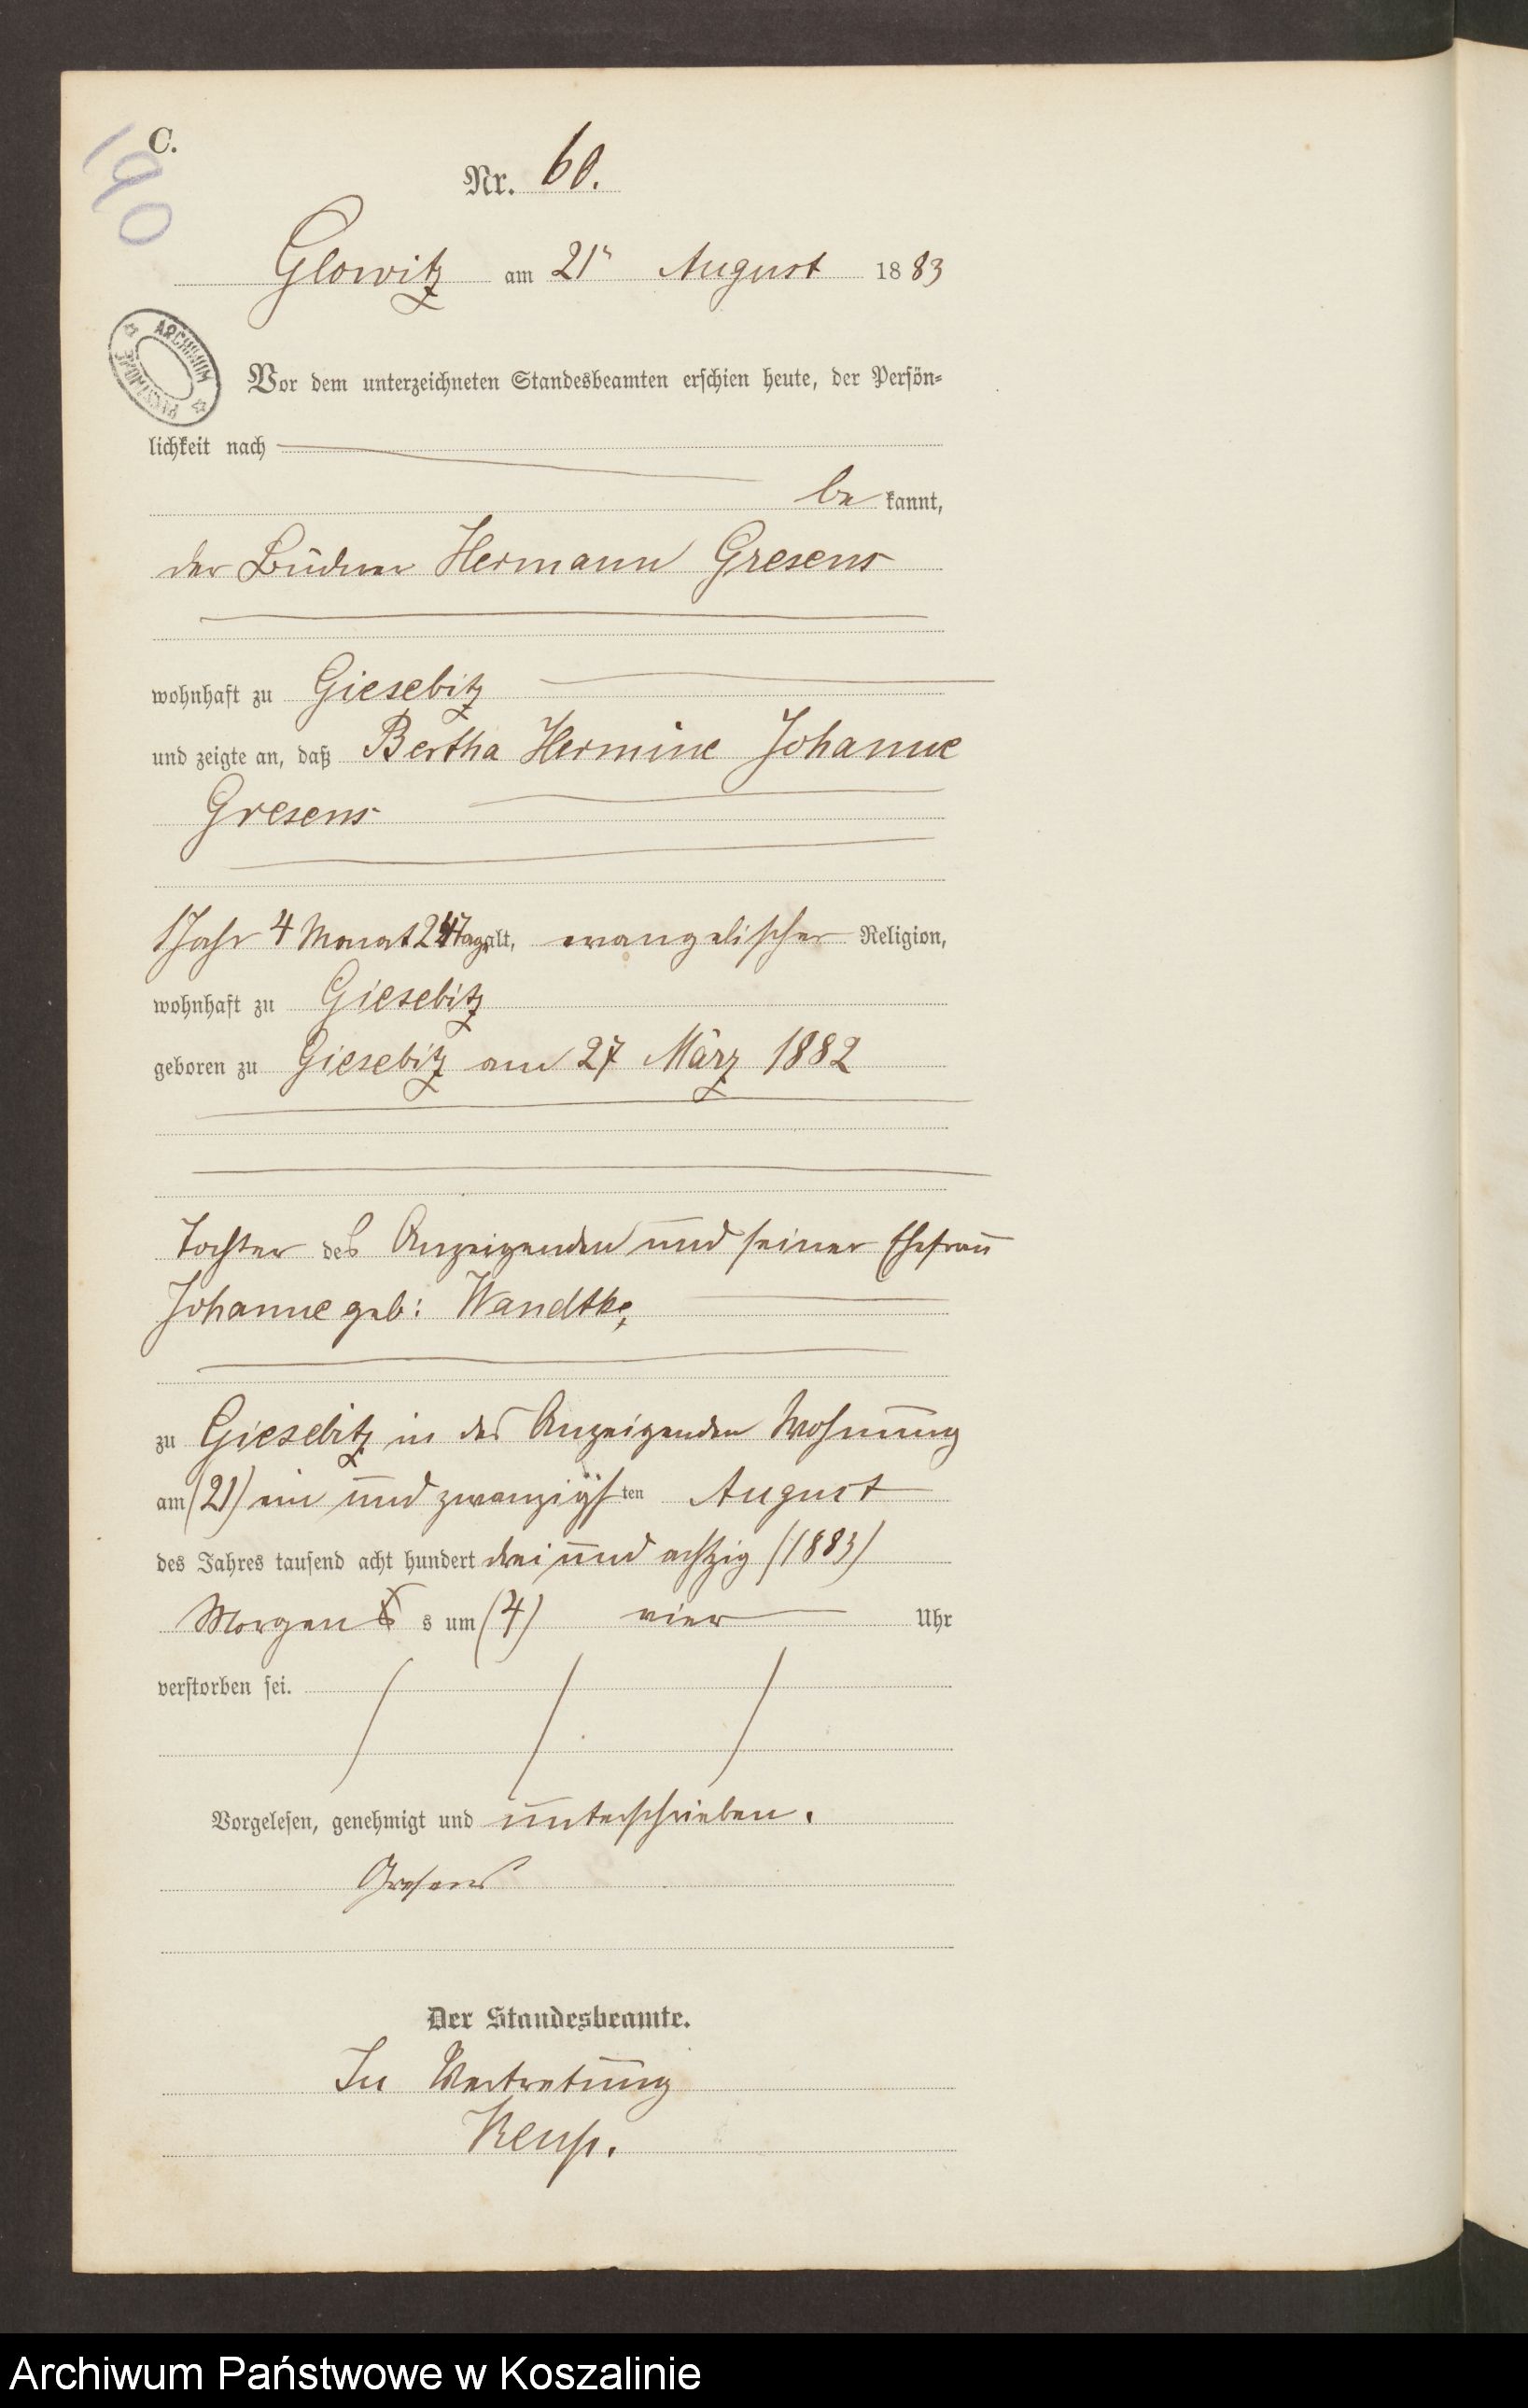 C.
190
Nr. 60.
Glowitz am 21n August 1883
ARCHIWUM PAŃSTWOWE
Vor dem unterzeichneten Standesbeamten erschien heute, der Persön-
lichkeit nach
be kannt,
der Büdner Hermann Gresens
wohnhaft zu Giesebitz
und zeigte an, daß Bertha Hermine Johanne
Gresens
1 Jahr 4 Monat Tage alt, evangelischer Religion,
wohnhaft zu Giesebitz
geboren zu Giesebitz am 27 März 1882
Tochter des Anzeigenden und seiner Ehefrau
Johanne geb: Wandtke,
zu Giesebitz in des Anzeigenden Wohnung
am (21) ein und zwanzigsten August
des Jahres tausend acht hundert drei und achtzig (1883)
Morgen s um (4) vier Uhr
verstorben sei.
Vorgelesen, genehmigt und unterschrieben.
Gresens
Der Standesbeamte.
In Vertretung
Archiwum Państwowe w Koszalinie